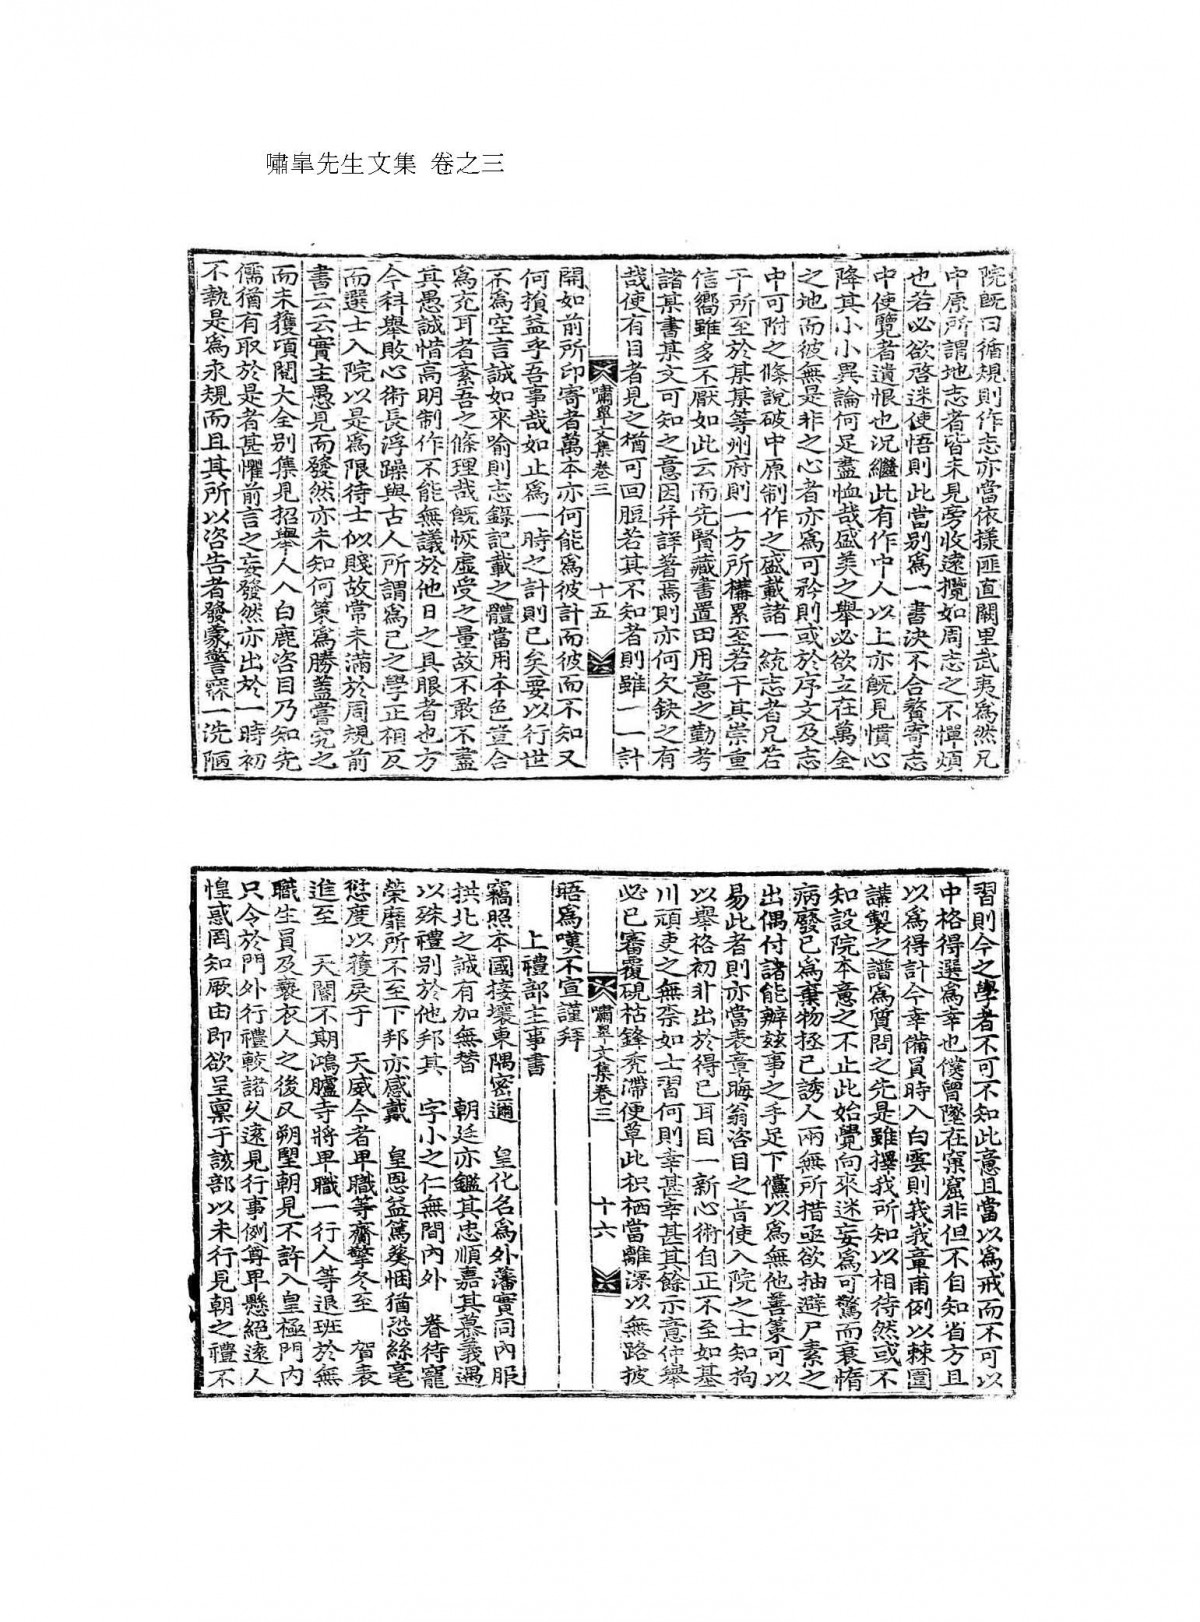 嘯皐先生文集 卷之三
院旣曰循規則作志亦當依樣匪直闕里武夷爲然凡
中原所謂地志者皆未見旁收遠攬如周志之不憚煩
也若必欲啓迷使悟則此當别爲一書決不合贅寄志
中使覽者遺恨也況繼此有作中人以上亦旣見憤心
降其小小異論何足盡恤哉盛美之舉必欲立在萬全
之地而彼無是非之心者亦爲可矜則或於序文及志
中可附之條說破中原制作之盛載諸一統志者凡若
干所至於某某等州府則一方所構累至若干其崇重
信嚮雖多不厭如此云而先賢藏書置田用意之勤考
諸某書某文可知之意因幷詳著焉則亦何欠缺之有
哉使有目者見之猶可回脰若其不知者則雖一一計
嘯皐文集卷三 十五
開如前所印寄者萬本亦何能爲彼計而彼而不知又
何損益乎吾事哉如止爲一時之計則已矣要以行世
不爲空言誠如來喩則志錄記載之體當用本色豈合
爲充耳者紊吾之條理哉旣恢虛受之量故不敢不盡
其愚誠惜高明制作不能無議於他日之具眼者也方
今科舉敗心術長浮躁與古人所謂爲己之學正相反
而選士入院以是爲限待士似賤故常未滿於周規前
書云云實主愚見而發然亦未知何策爲勝蓋嘗究之
而未獲項閱大全别集見招舉人入白鹿咨目乃知先
儒猶有取於是者甚懼前言之妄發然亦出於一時初
不執是爲永規而且其所以咨告者發蒙警寐一洗陋
習則今之學者不可不知此意且當以爲戒而不可以
中格得選爲幸也僕曾墜在窠窟非但不自知省方且
以爲得計今幸備員時入白雲則莪莪章甫例以棘圍
講製之譜爲質問之先是雖擇我所知以相待然或不
知設院本意之不止此始覺向來迷妄爲可驚而衰惰
病廢已爲棄物拯己誘人兩無所措亟欲抽避尸素之
出偶付諸能辦玆事之手足下儻以爲無他善策可以
易此者則亦當表章晦翁咨目之旨使入院之士知拘
以舉格初非出於得已耳目一新心術自正不至如基
川頑吏之無柰如士習何則幸甚幸甚其餘示意仲舉
必已審覆硯枯鋒禿滯便草此枳栖當離深以無路披
嘯皐文集卷三 十六
晤爲嘆不宣謹拜
上禮部主事書
竊照本國接壤東隅密邇 皇化名爲外藩實同內服
拱北之誠有加無替 朝廷亦鑑其忠順嘉其慕義遇
以殊禮别於他邦其 字小之仁無間內外 眷待寵
榮靡所不至下邦亦感戴 皇恩益篤葵悃猶恐絲毫
愆度以獲戾于 天威今者卑職等齎擎冬至 賀表
進至 天闕不期鴻臚寺將卑職一行人等退班於無
職生員及褻衣人之後又朔望朝見不許入皇極門內
只令於門外行禮較諸久遠見行事例尊卑懸絕遠人
惶惑罔知厥由即欲呈稟于該部以未行見朝之禮不